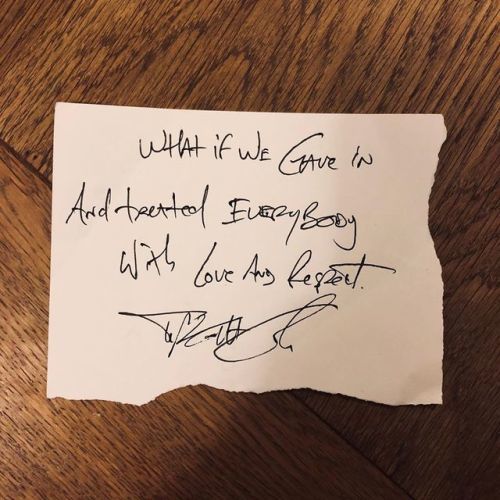 What if we Gave in
And treated EVERYBODY
With Love And Respect.